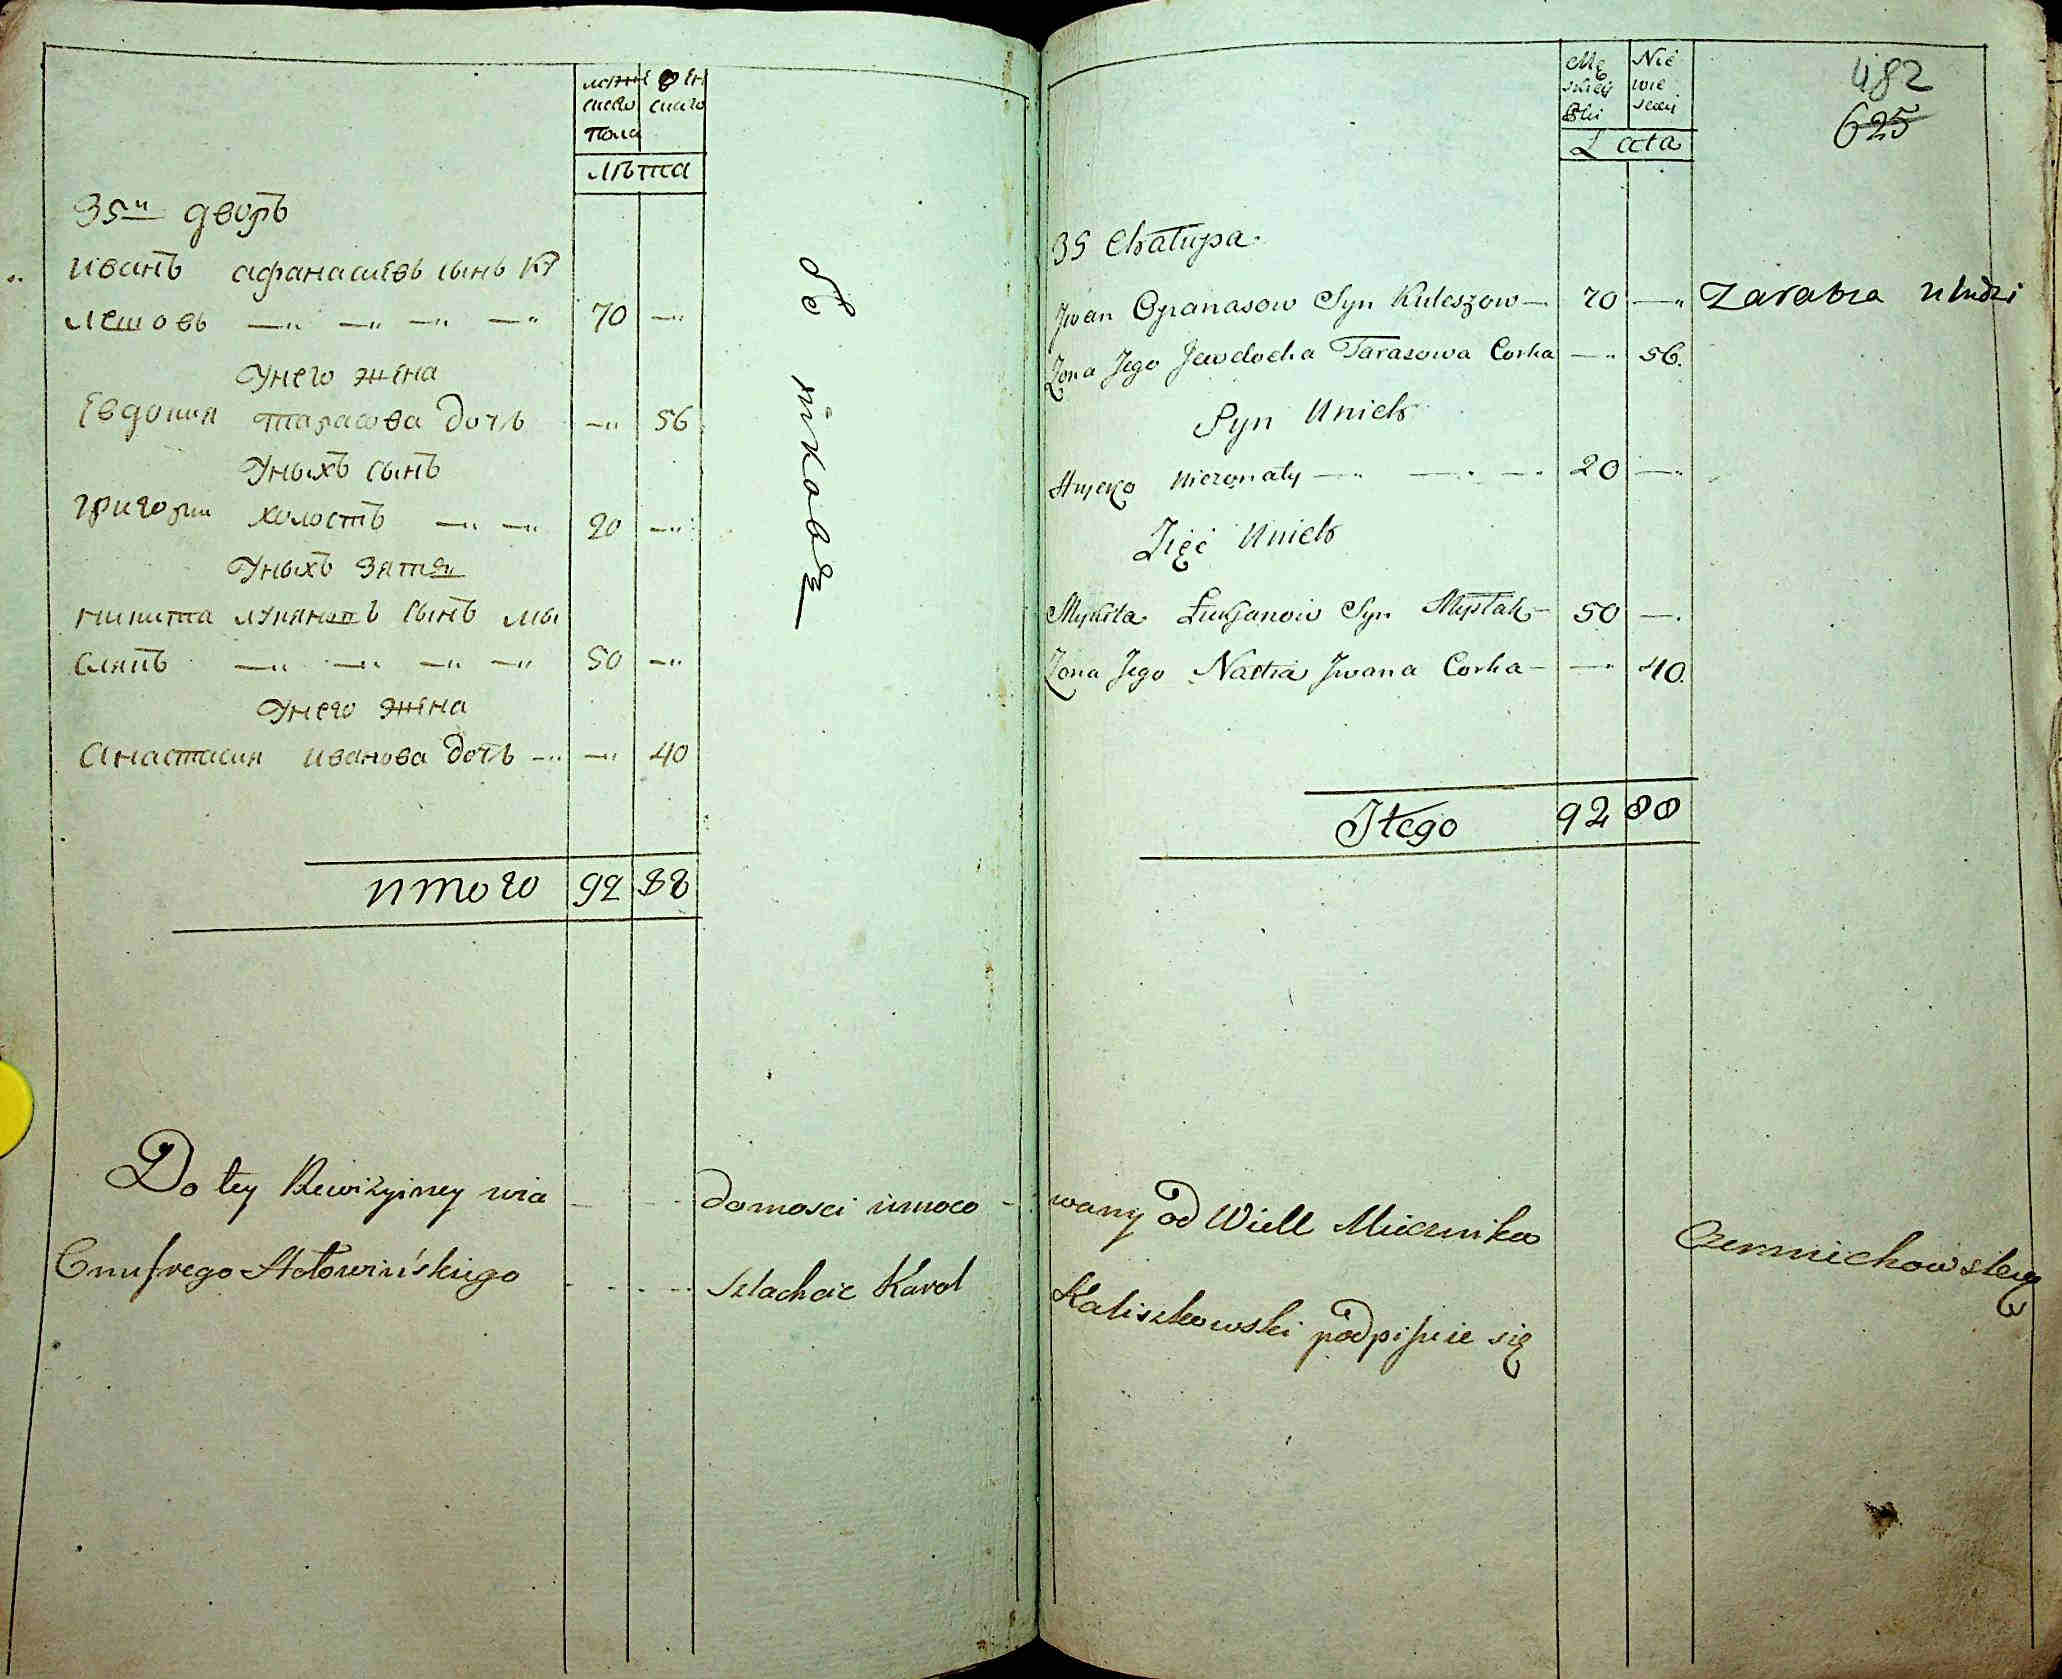 мужескаго женскаго
пола
лѣта
35й дворъ
Иванъ афанасиевъ сынъ Ку
лешовъ —„ —„ —„ —„ 70 —„
У него жена
Евдокия тарасова дочь —„ 56
У ныхъ сынъ
григории холостъ —„ —„ 20 —„
У ныхъ зять
никита лукяновъ сынъ мы
слякъ —„ —„ —„ —„ 50 —„
У него жена
Анастасия иванова дочь —„ —„ 40
итого 92 88
Mę skiey Płci Nie wie sciey
Lata
482
625
35 Chałupa
Jwan Opanasow Syn Kuleszow — 70 —„ Zarabia u ludzi
Zona Jego Jewdocha Tarasowa Corka —„ 56.
Syn Unich
Hryćko niezonaty —„ —„ —„ 20 —„
Zięć Unich
Mykita Łukjanow Syn Myslak — 50 —„
Zona Jego Nastia Jwana Corka — —„ 40.
Jtego 92 88
Do tey Rewizyiney wia — — domosci umoco - wany od Wiell Miecznika Czernichowskiey
Onufrego Hołowińskiego - - - - Szlachcic Karol Kaliszkowski podpisuie się